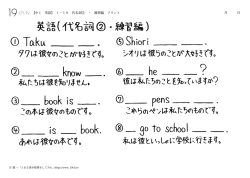 英語(代名詞②・練習編)
① Taku ___ ___.
タクは彼女のことが好きです。
② ___ ___ know ___.
私たちは彼を知りません。
③ ___ book is ___.
この本は彼女のものです。
④ ___ is ___ book.
あれは彼女の本です。
⑤ Shiori ___ ___.
シオリは彼らのことが大好きです。
⑥ ___ he ___ ___?
彼は私たちのことを知っていますか?
⑦ ___ pens ___ ___.
これらのペンは私たちのものです。
⑧ ___ go to school ___ ___.
私は彼といっしょに学校に行きます。